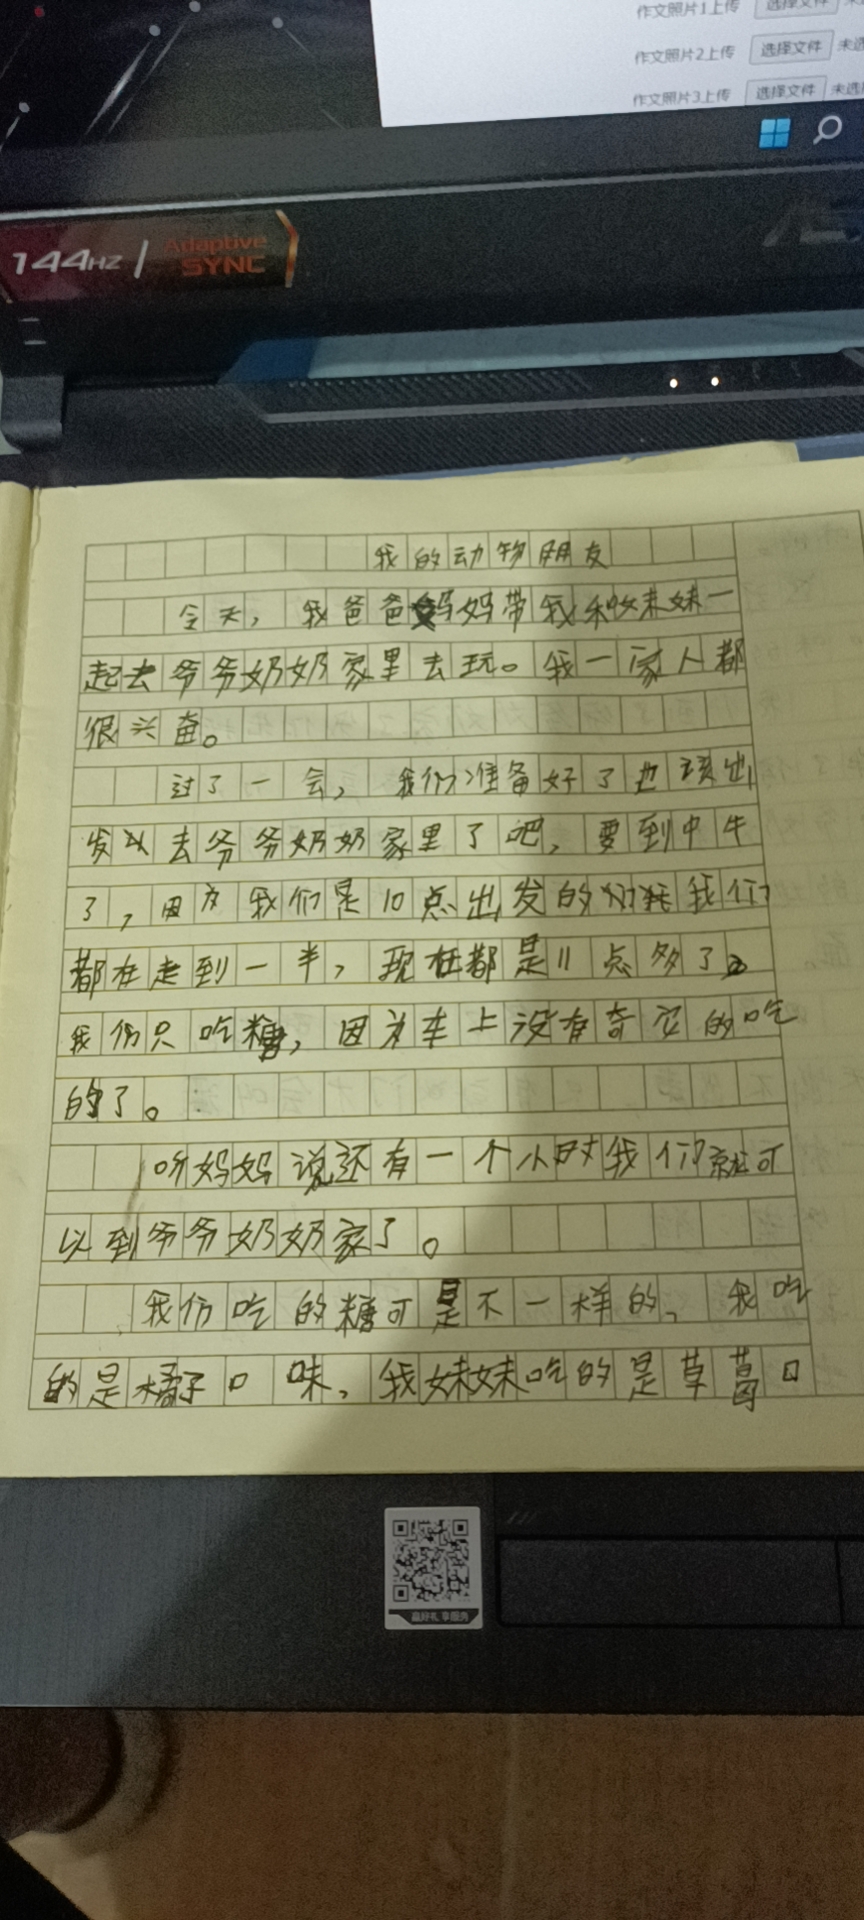 作文照片1上传 选择文件
作文照片2上传 选择文件 未选
作文照片3上传 选择文件 未选
144HZ Adaptive SYNC
我的动物朋友
今天，我爸爸妈妈带我和妹妹一
起去爷爷奶奶家里去玩。我一家人都
很兴奋。
过了一会，我们准备好了也该出
发去爷爷奶奶家里了吧，要到中午
了，因为我们是10点出发的我们
都在走到一半，现在都是11点多了。
我们只吃糖，因为车上没有其它的吃
的了。
听妈妈说还有一个小时我们就可
以到爷爷奶奶家了。
我们吃的糖可是不一样的，我吃
的是橘子口味，我妹妹吃的是草莓口
赢好礼 享服务